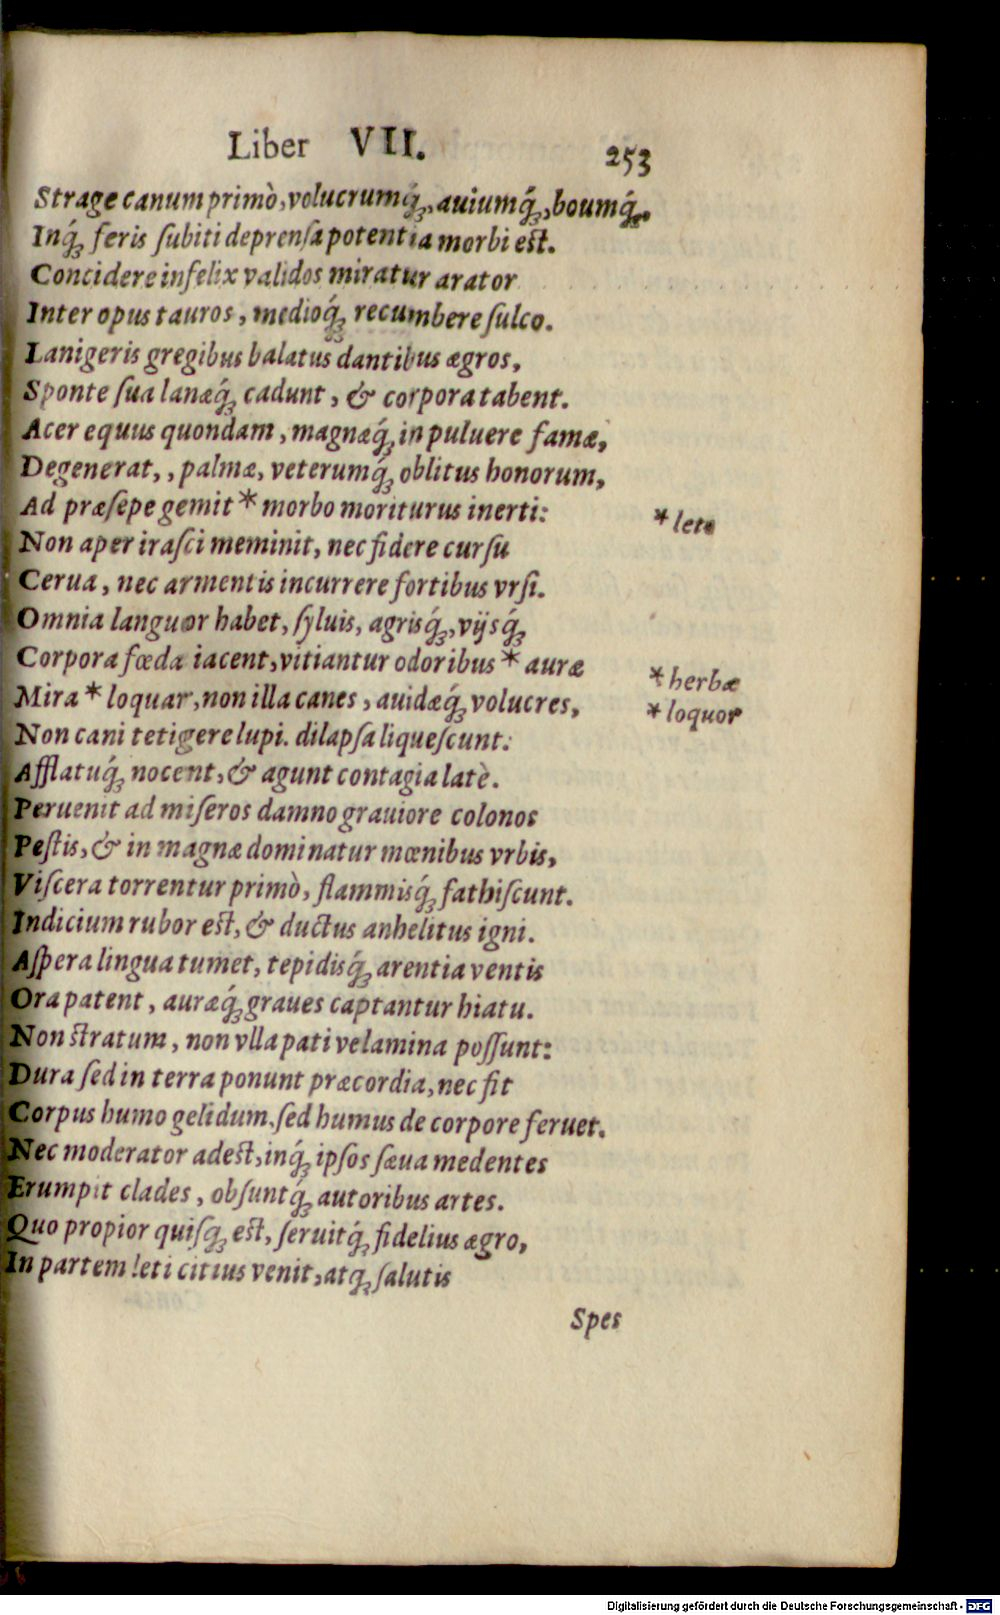 Liber VII. 253
Strage canum primò, volucrumq́;, auiumq́;, boumq́;.
Inq́; feris ſubiti deprenſa potentia morbi eſt.
Concidere infelix validos miratur arator
Inter opus tauros, medioq́; recumbere ſulco.
Lanigeris gregibus balatus dantibus ægros,
Sponte ſua lanæq́; cadunt, & corpora tabent.
Acer equus quondam, magnæq́; in puluere famæ,
Degenerat, , palmæ, veterumq́; oblitus honorum,
Ad præſepe gemit * morbo moriturus inerti: * leto
Non aper iraſci meminit, nec fidere curſu
Cerua, nec armentis incurrere fortibus vrſi.
Omnia languor habet, ſyluis, agrisq́;, vijsq́;
Corpora fœda iacent, vitiantur odoribus * auræ * herbæ
Mira * loquar, non illa canes, auidæq́; volucres, * loquor
Non cani tetigere lupi. dilapſa liqueſcunt:
Afflatuq́; nocent, & agunt contagia latè.
Peruenit ad miſeros damno grauiore colonos
Peſtis, & in magnæ dominatur mœnibus vrbis,
Viſcera torrentur primò, flammisq́; fathiſcunt.
Indicium rubor eſt, & ductus anhelitus igni.
Aſpera lingua tumet, tepidisq́; arentia ventis
Ora patent, auræq́; graues captantur hiatu.
Non ſtratum, non vlla pati velamina poſſunt:
Dura ſed in terra ponunt præcordia, nec fit
Corpus humo gelidum, ſed humus de corpore feruet.
Nec moderator adeſt, inq́; ipſos ſæua medentes
Erumpit clades, obſuntq́; autoribus artes.
Quo propior quiſq; eſt, ſeruitq́; fidelius ægro,
In partem leti citius venit, atq; ſalutis
Spes
Digitalisierung gefördert durch die Deutsche Forschungsgemeinschaft - DFG